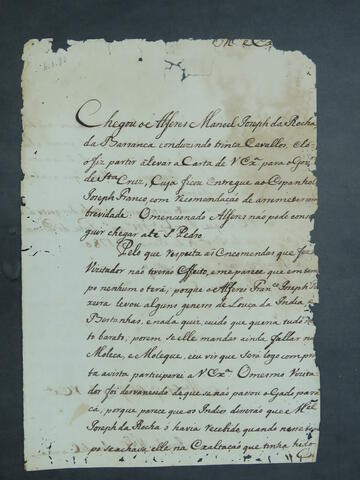 Chegou o Alferes Manoel Joseph da Rocha
da Barranca conduzindo trinta Cavallos, e lo-
fiz partir a levar a Carta de V Exª para o Govº
de Stª Cruz, Cuja ficou entregue ao Espanhol
Joseph Franco, com recomendação de arremeter com
brevidade. O mencionado Alferes não pode conse-
guir chegar até S. Pedro.
Pelo que respeita às Encomendas que
Vizitador não tiverão Effeito, e me parece que em tem
po nenhum o terá, porque o Alferes Francº Joseph
xeira levou alguns generos de Louça da India, e
Bertanhas, e nada quiz, cuido que queria tudo
to barato, porem se elle mandar ainda fallar na
Moleca, e Moleque, eu vir que Será logo com pron
ta avista participarei a V Exª O mesmo Vizita
dor foi devaneando de que se não passou o Gado para
cá, porque parece que os Indios disserão que o Mel
Joseph da Rocha o havia recebido, quando nesse tem
po se achava elle na Exaltação que tinha hido